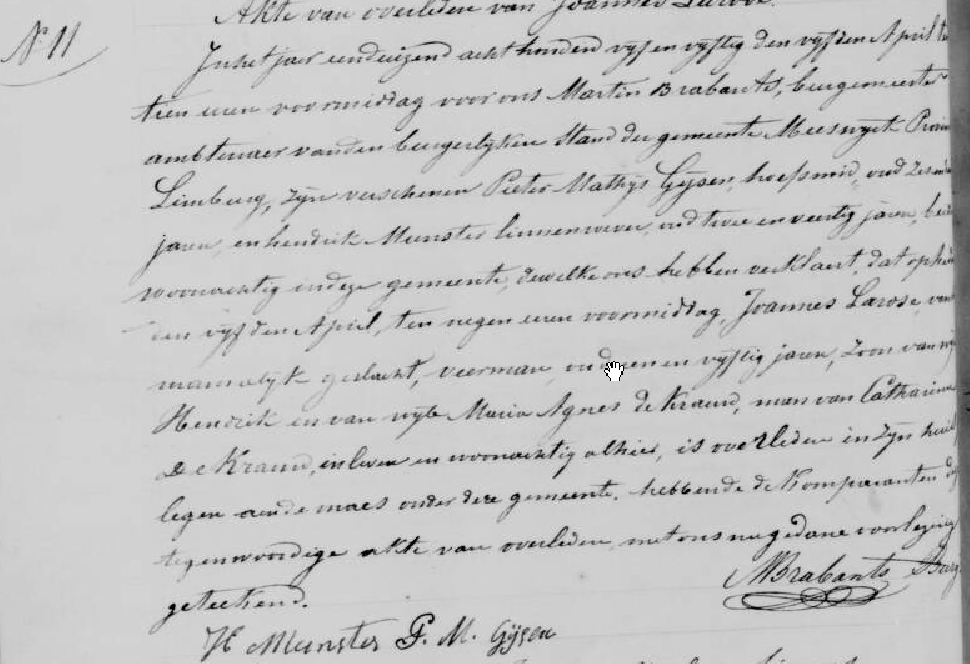 Akte van overleden van Joannes Larose.
N° 11
In het jaer eenduizend acht honderd vyf en vyftig den vyfden April te
tien uren voormiddag voor ons Martin Brabants, burgemeester
ambtenaer van den burgerlyken Stand der gemeente Meeswyck
Limburg, zyn verschenen Pieter Mathys Gysen, hoefsmid, oud
jaren, en hendrik Munsters linnenwever, oud twee en veertig jaren,
woonachtig in deze gemeente, dewelke ons hebben verklaert, dat op
den vyfden April, ten negen uren voormiddag, Joannes Larose, van
mannelyk geslacht, veerman, oud en vyftig jaren, zoon van
Hendrik en van wyle Maria Agnes de Kraund, man van Catharina
de Kraund, in leven en woonachtig alhier, is overleden in zyn
legen aen de maes onder deze gemeente. hebbende de Komparanten
tegenwoordige akte van overleden, met ons na gedane voorlezing
geteekend.
MBrabants Burg
H Munsters P. M. Gijsen